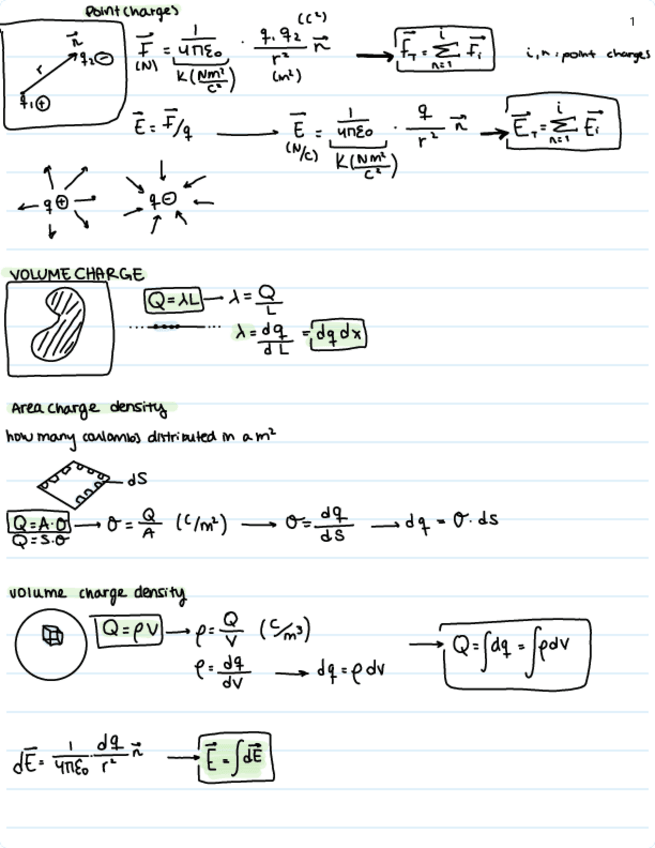 Point charges
1
q₁⊕ r n⃗ q₂⊖
F⃗ (N) = 1/4πε₀ · q₁ q₂ (C²)/r² (m²) n⃗ → F⃗T = Σ(n=1 to i) F⃗i   i, n : point charges
K (Nm²/C²)
E⃗ = F⃗/q → E⃗ (N/C) = 1/4πε₀ · q/r² n⃗ → E⃗T = Σ(n=1 to i) E⃗i
K (Nm²/C²)
q⊕ q⊖
VOLUME CHARGE
Q=λL → λ = Q/L
λ = dq/dL = dq dx
Area charge density
how many coulombs distributed in a m²
dS
Q=A·σ → σ = Q/A (C/m²) → σ = dq/dS → dq = σ·ds
Q=S·σ
volume charge density
Q=ρV → ρ = Q/V (C/m³) → Q=∫dq = ∫ρdv
ρ = dq/dV → dq = ρ dv
dE⃗ = 1/4πε₀ dq/r² n⃗ → E⃗ = ∫dE⃗